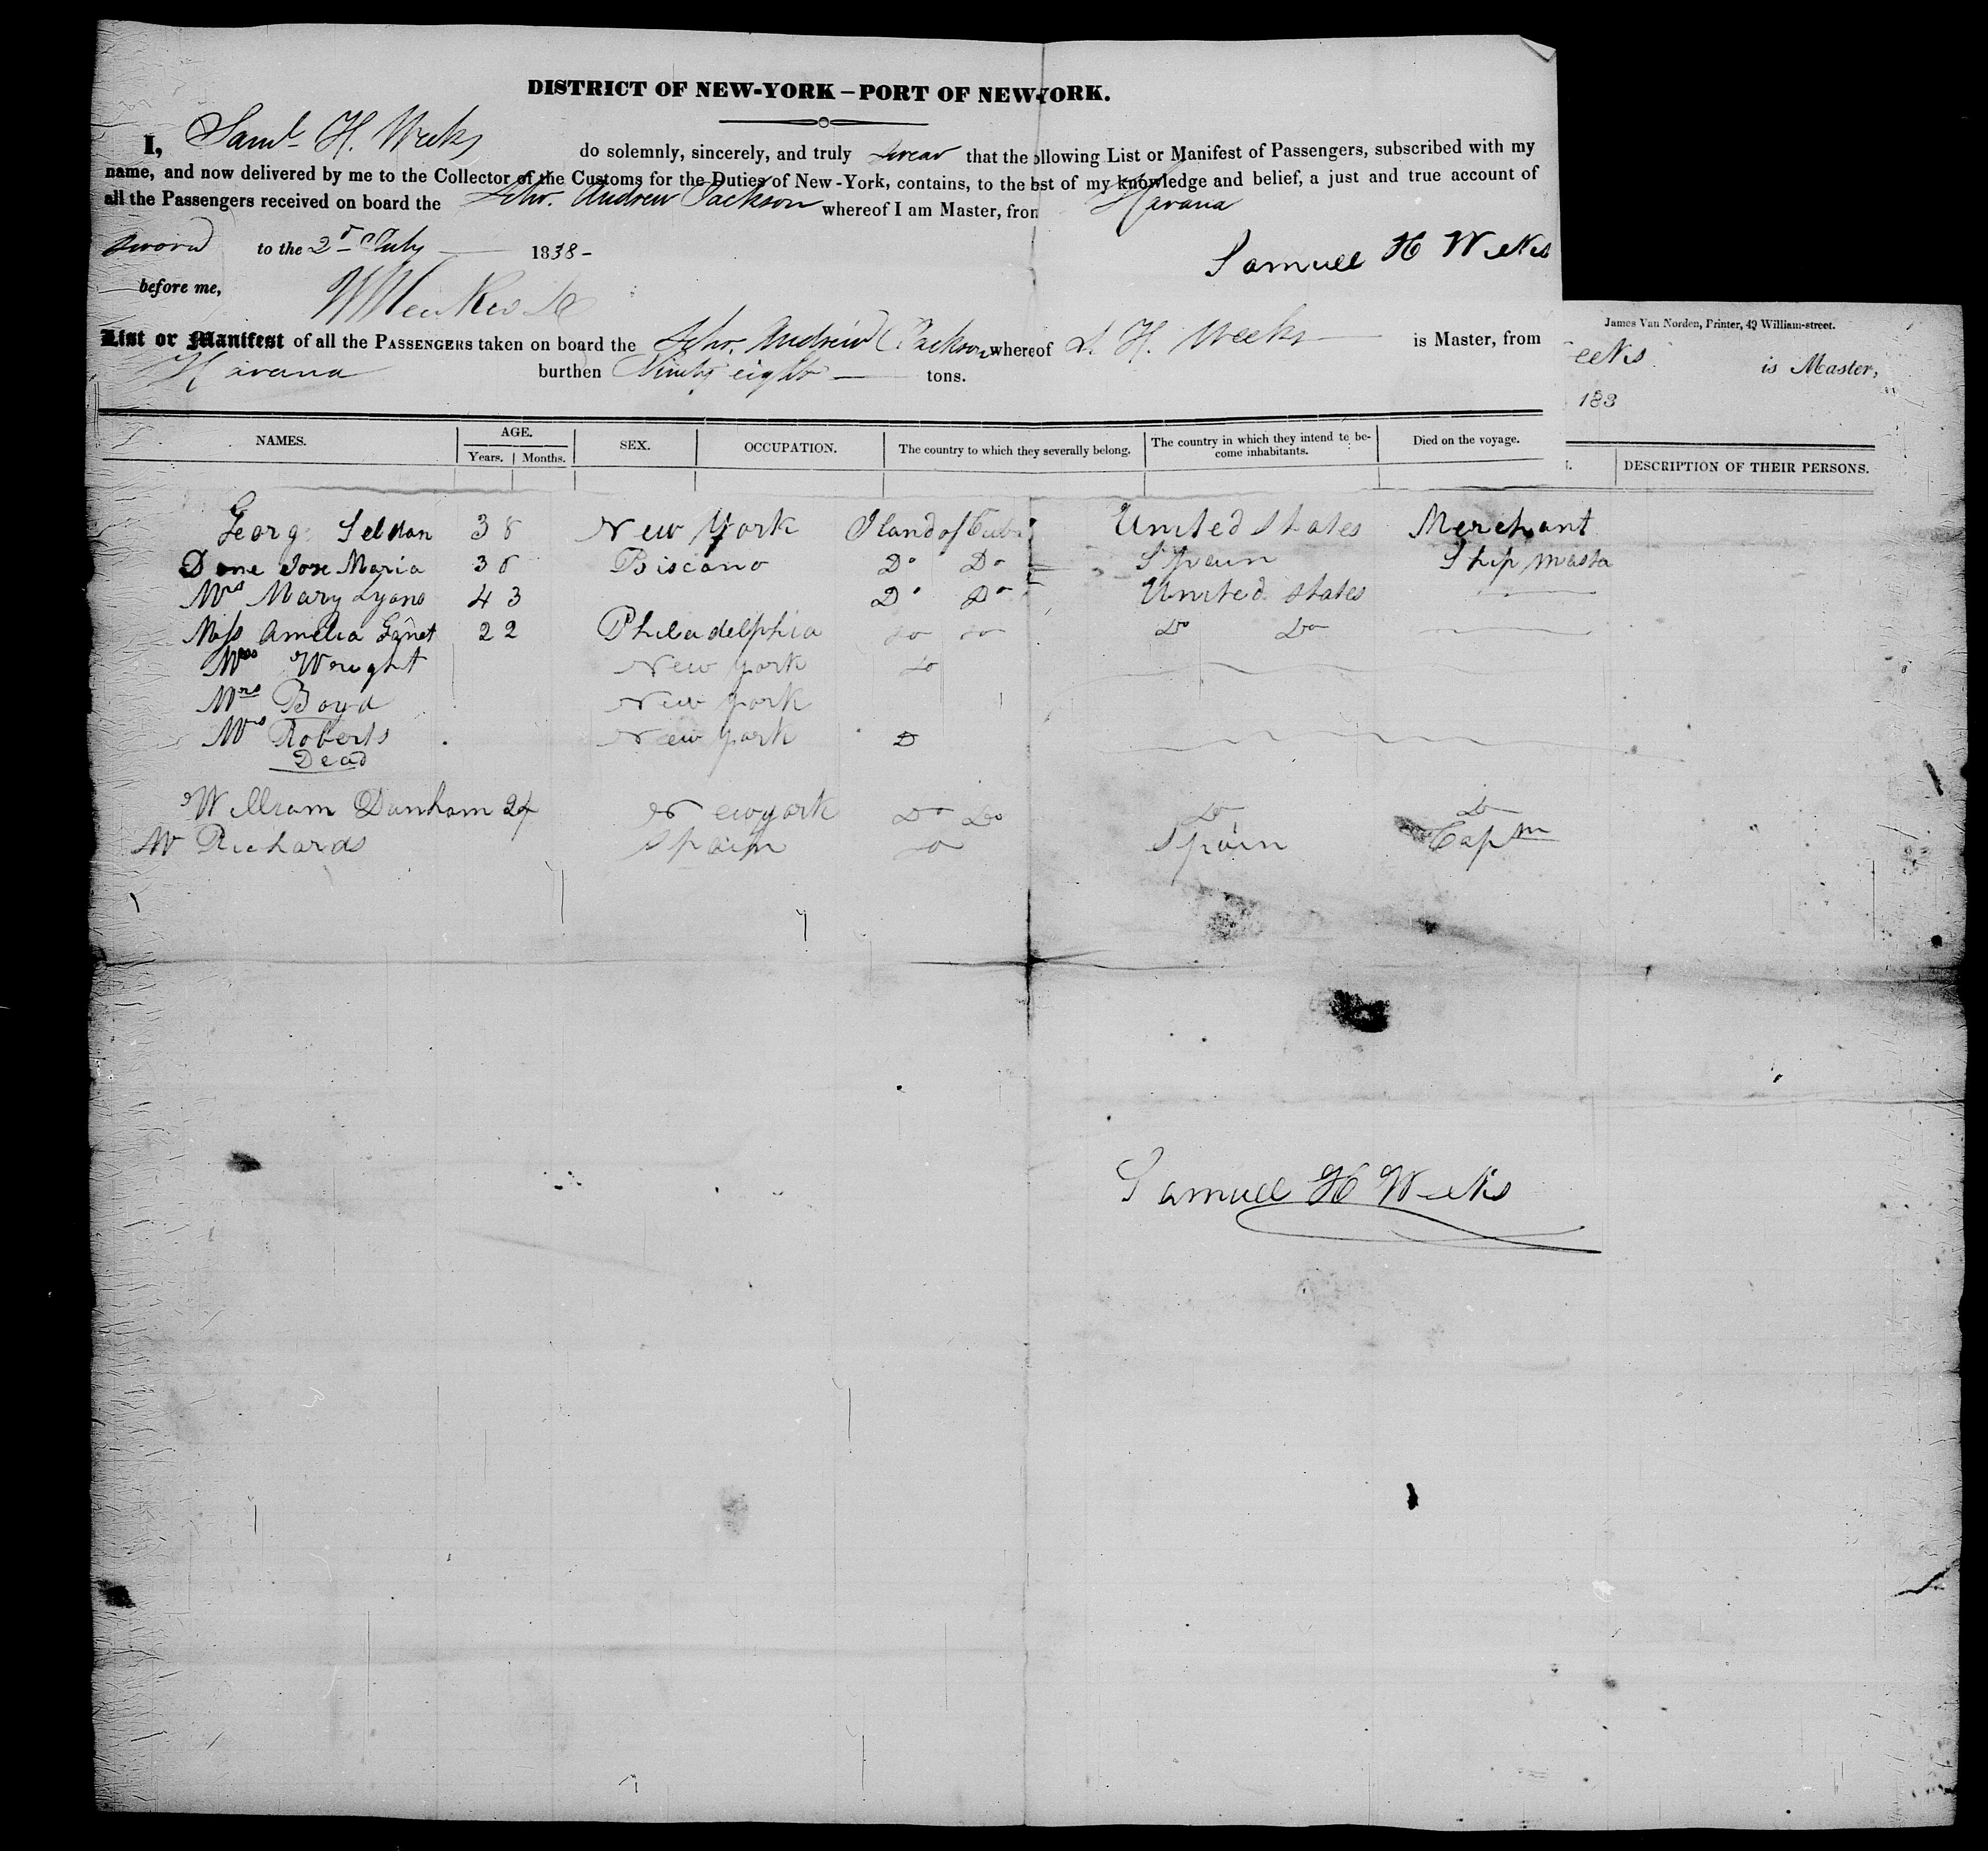 DISTRICT OF NEW-YORK – PORT OF NEW-YORK.
I, Saml H. Weeks do solemnly, sincerely, and truly swear that the ollowing List or Manifest of Passengers, subscribed with my
name, and now delivered by me to the Collector of the Customs for the Duties of New-York, contains, to the bst of my knowledge and belief, a just and true account of
all the Passengers received on board the Schr. Andrew Jackson whereof I am Master, fron Havana
Sworn to the 2d July 1838-
Samuell H Weeks
before me,
James Van Norden, Printer, 49 William-street.
List or Manifest of all the PASSENGERS taken on board the Schr. Andrew Jackson whereof S. H. Weeks is Master, from
eeks is Master,
Havana burthen Ninety eight tons.
183
NAMES. AGE. SEX. OCCUPATION. The country to which they severally belong. The country in which they intend to be- Died on the voyage.
Years. Months. come inhabitants.
DESCRIPTION OF THEIR PERSONS.
Georg Seldan 38 New York Iland of Cuba United States Merchant
Done Jose Maria 36 Biscano Do Do Spaun Ship Masta
Mrs Mary Lyons 43 Do Do United States
Miss Amelia Ganet 22 Philadelphia Do Do Do Do
Mrs Wright New York Do
Mrs Boyd New York
Mrs Roberts New York D
Dead
William Danham 24 Newyork Do Do Do Do
W Richards Spain Do Spain Captn
Samuell H Weeks